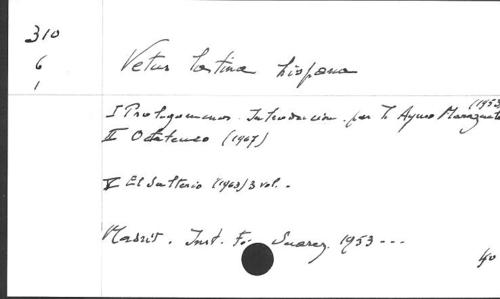 310
6
1
Vetus latina hispana
(1953)
I Prolegomenos. Introduccion. por T. Ayuso Marazuela
II Octateuco (1967)
V El Salterio (1963) 3 vol.-
Madrid. Inst. F. Suarez. 1953---
40